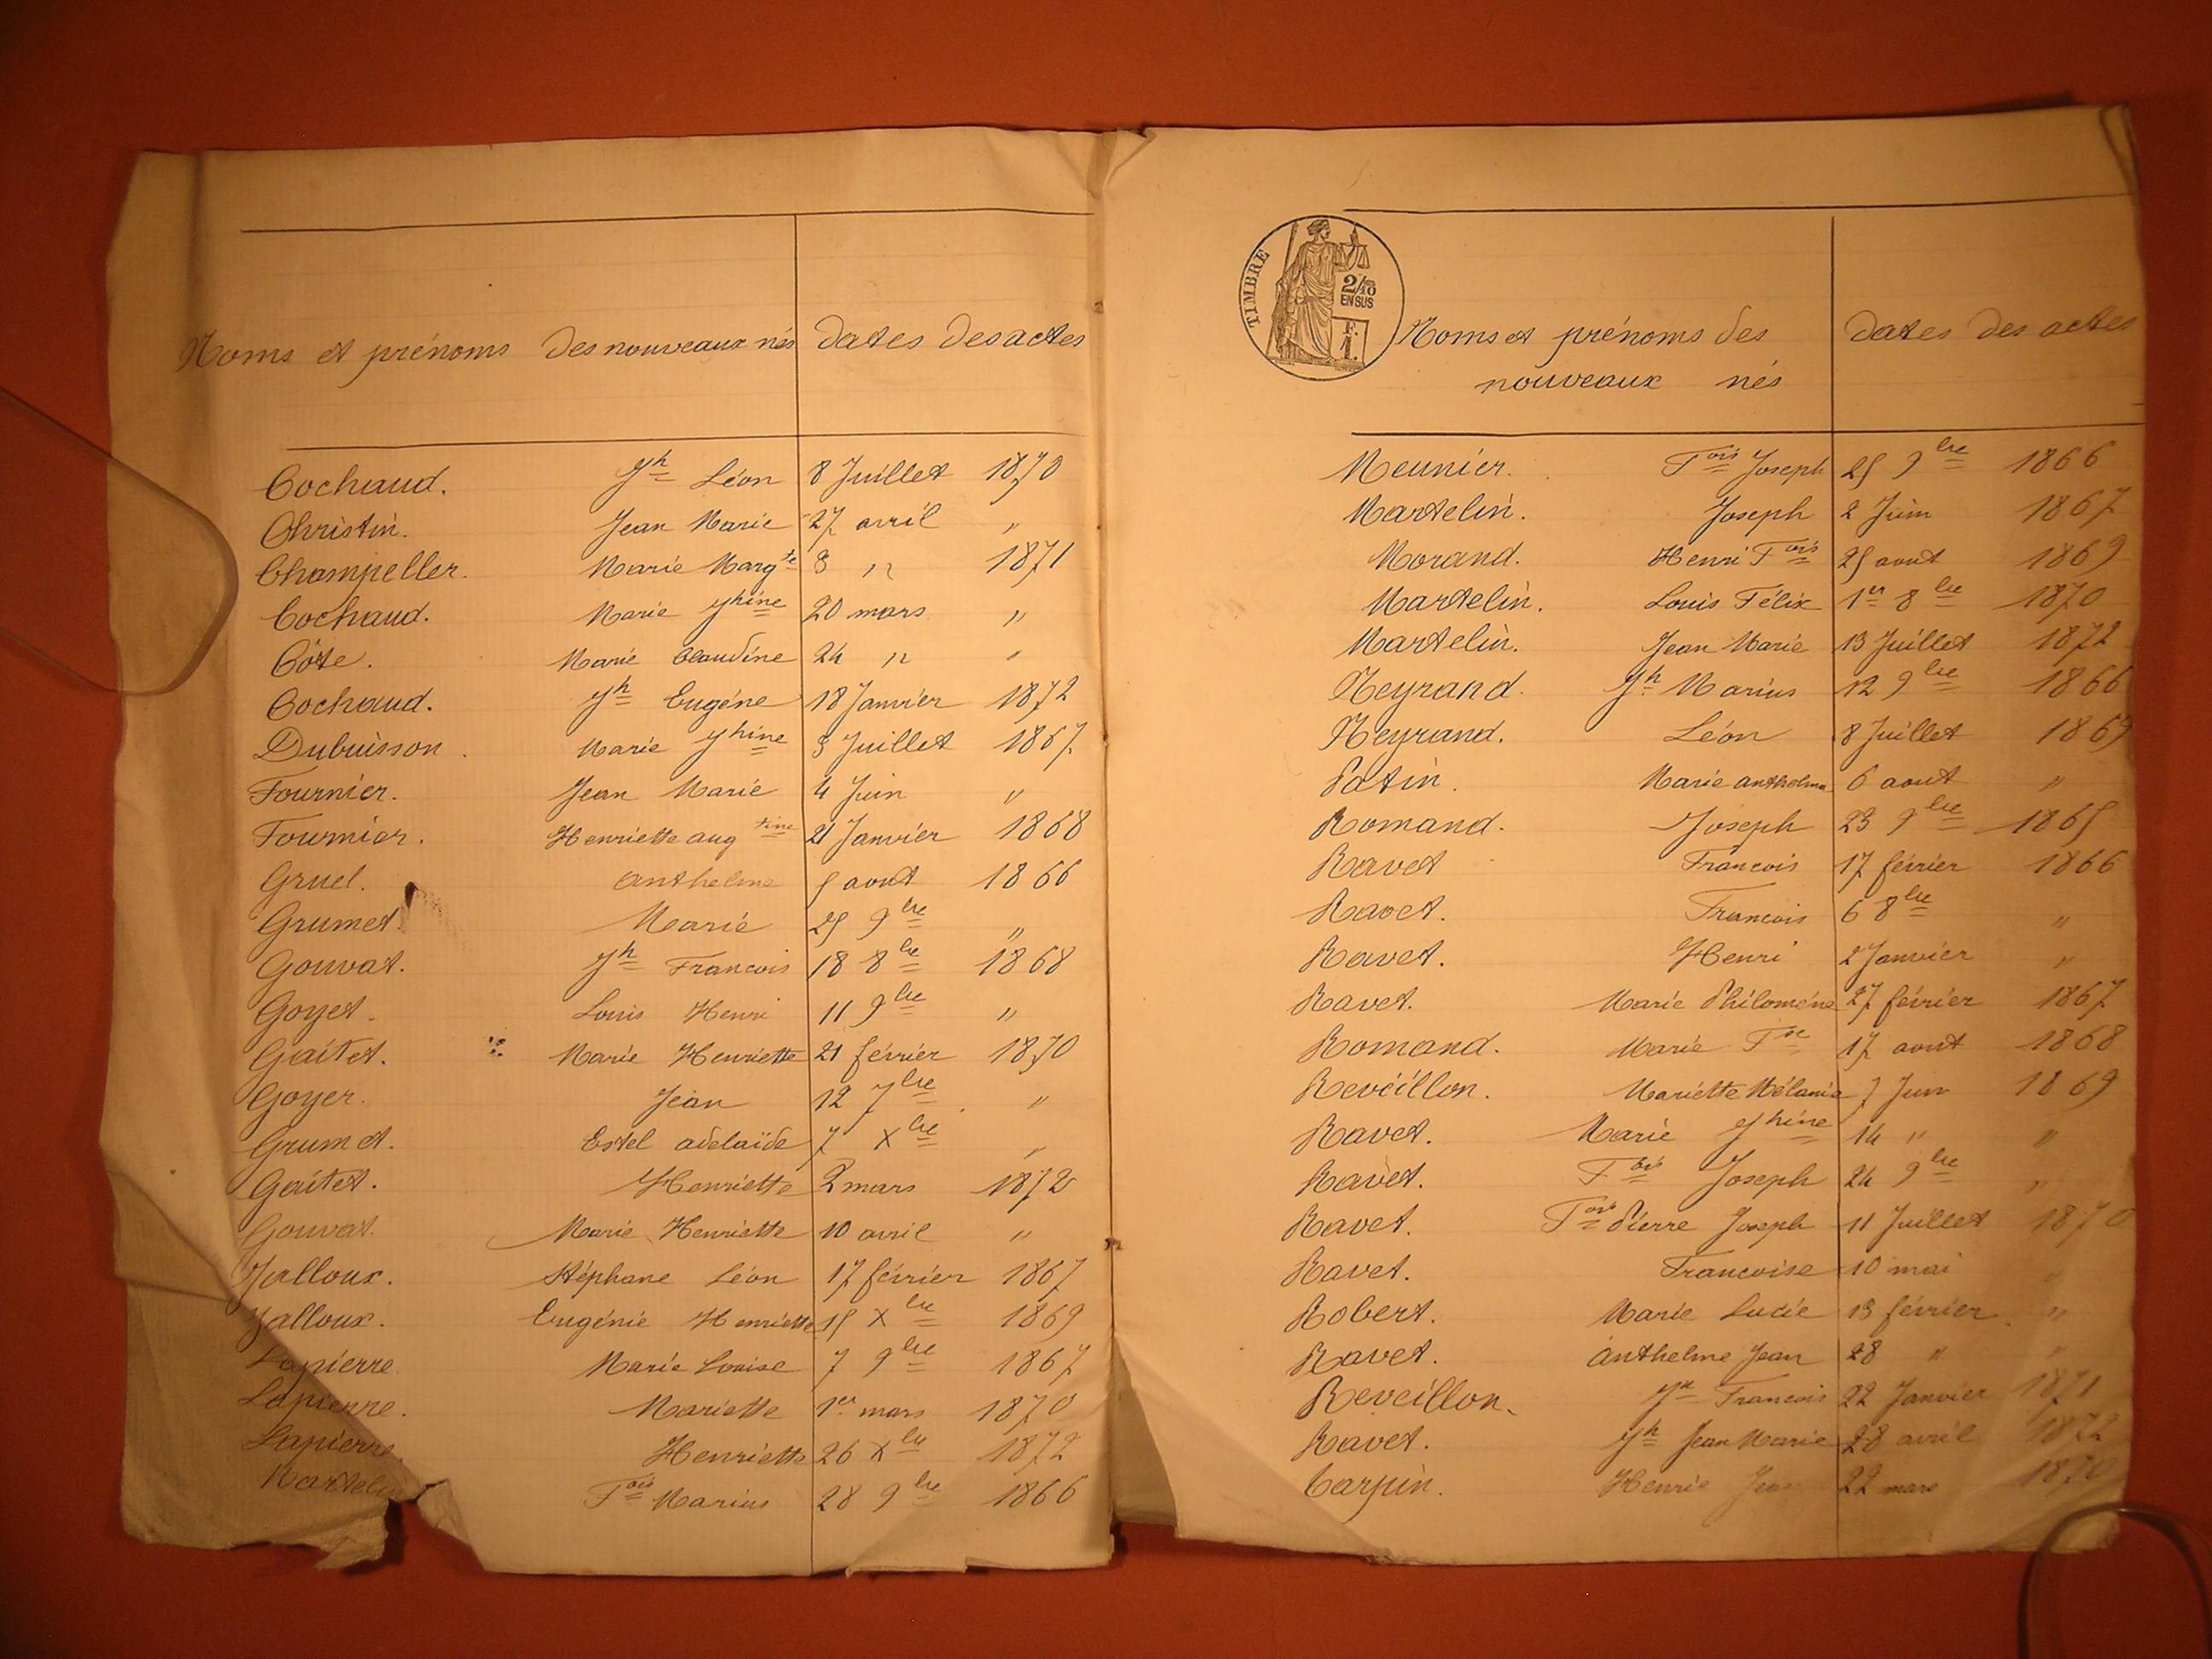 Noms et prénoms des nouveaux nés dates des actes
Cochaud. Jh Léon 8 Juillet 1870
Christin. Jean Marie 27 avril "
Champeller. Marie Margte 3 " 1871
Cochaud. Marie Jhine 20 mars "
Côte. Marie Claudine 24 " "
Cochaud. Jh Eugéne 18 Janvier 1872
Dubuisson. Marie Jhine 3 Juillet 1867
Fournier. Jean Marie 4 Juin "
Fournier. Henriette augtine 21 Janvier 1868
Gruel. anthelme 5 aout 1866
Grumet. Marie 25 9bre "
Gouvat. Jh Francois 18 8bre 1868
Goyet. Louis Henri 11 9bre "
Gaitet. Marie Henriette 21 février 1870
Goyer. Jean 12 7bre "
Grumet. Estel adelaïde 7 Xbre "
Gaitet. Henriette 2 mars 1872
Gouvat. Marie Henriette 10 avril "
Jalloux. Stéphane Léon 17 février 1867
Jalloux. Eugénie Henriette 15 Xbre 1869
Lapierre. Marie Louise 7 9bre 1867
Lapierre. Mariette 1er mars 1870
Lapierre. Henriette 26 Xbre 1872
Martelin Fois Marius 28 9bre 1866
TIMBRE
2/10
EN SUS
F.
1.
Noms et prénoms des dates des actes
nouveaux nés
Meunier. Fois Joseph 25 9bre 1866
Martelin. Joseph 2 Juin 1867
Morand. Henri Fois 25 aout 1869
Martelin. Louis Félix 1er 8bre 1870
Martelin. Jean Marie 13 Juillet 1872
Neyrand. Jh Marius 12 9bre 1866
Neyrand. Léon 8 Juillet 1869
Patin. Marie anthelma 6 aout "
Romand. Joseph 23 9bre 1865
Ravet Francois 17 février 1866
Ravet. Francois 6 8bre "
Ravet. Henri 2 Janvier "
Ravet. Marie Philoméne 27 février 1867
Romand. Marie Fse 17 aout 1868
Revéillon. Mariette Mélanie 7 Juin 1869
Ravet. Marie Jhine 14 " "
Ravet. Fois Joseph 24 9bre "
Ravet. Fois Pierre Joseph 11 Juillet 1870
Ravet. Francoise 10 mai "
Robert. Marie Lucie 13 février "
Ravet. Anthelme Jean 28 " "
Reveillon. Jh Francois 22 Janvier 1871
Ravet. Jh Jean Marie 28 avril 1872
Carpin. Henri Jean 22 mars 1870